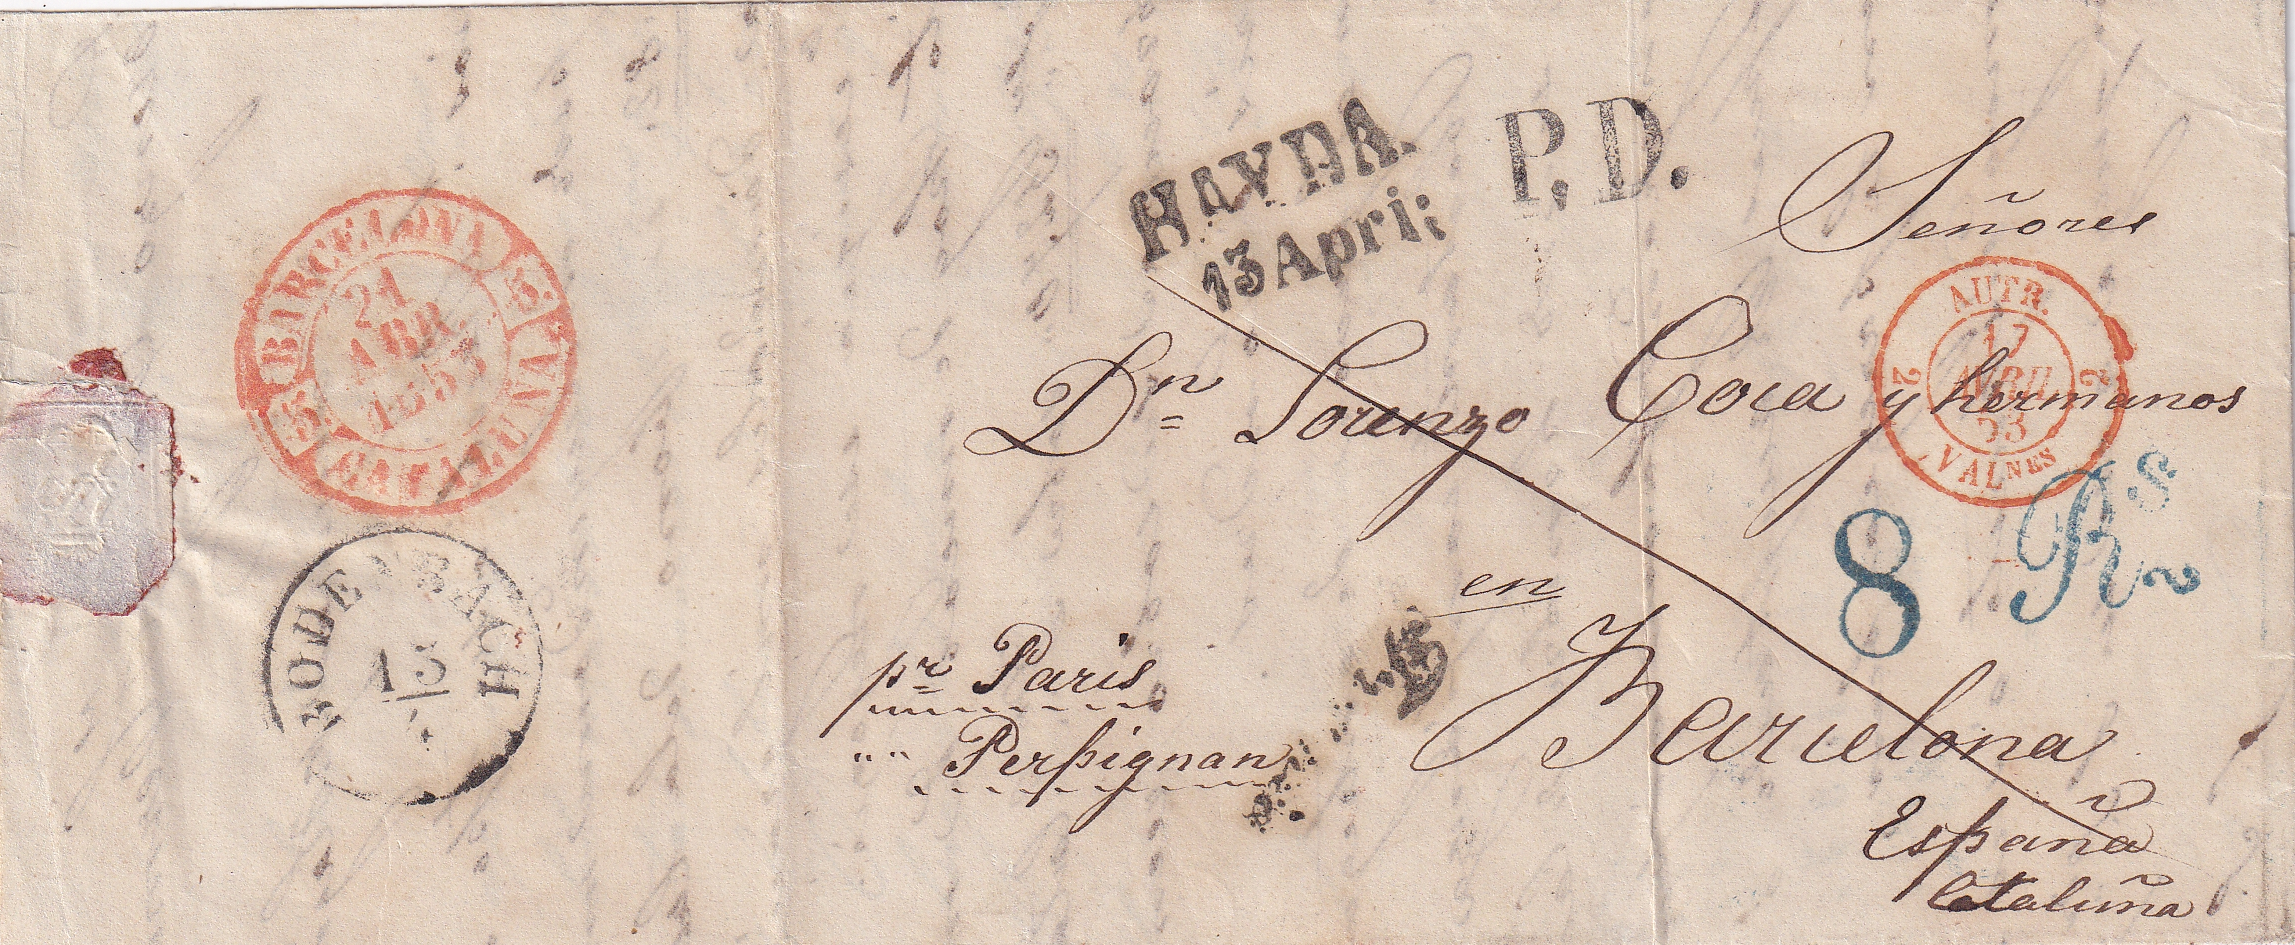 BARCELONA
5.
21
ABR
1853
5.
CATALUÑA
BODENBACH
13
4
HAYDA.
13 Apri:
P.D.
Señores
AUTR.
17
AVRIL
53
2
2
VALNES
Dn Lorenzo Coca y hermanos
8 Rs
en
pr Paris
"" Perpignan
Barcelona
España
Cataluña